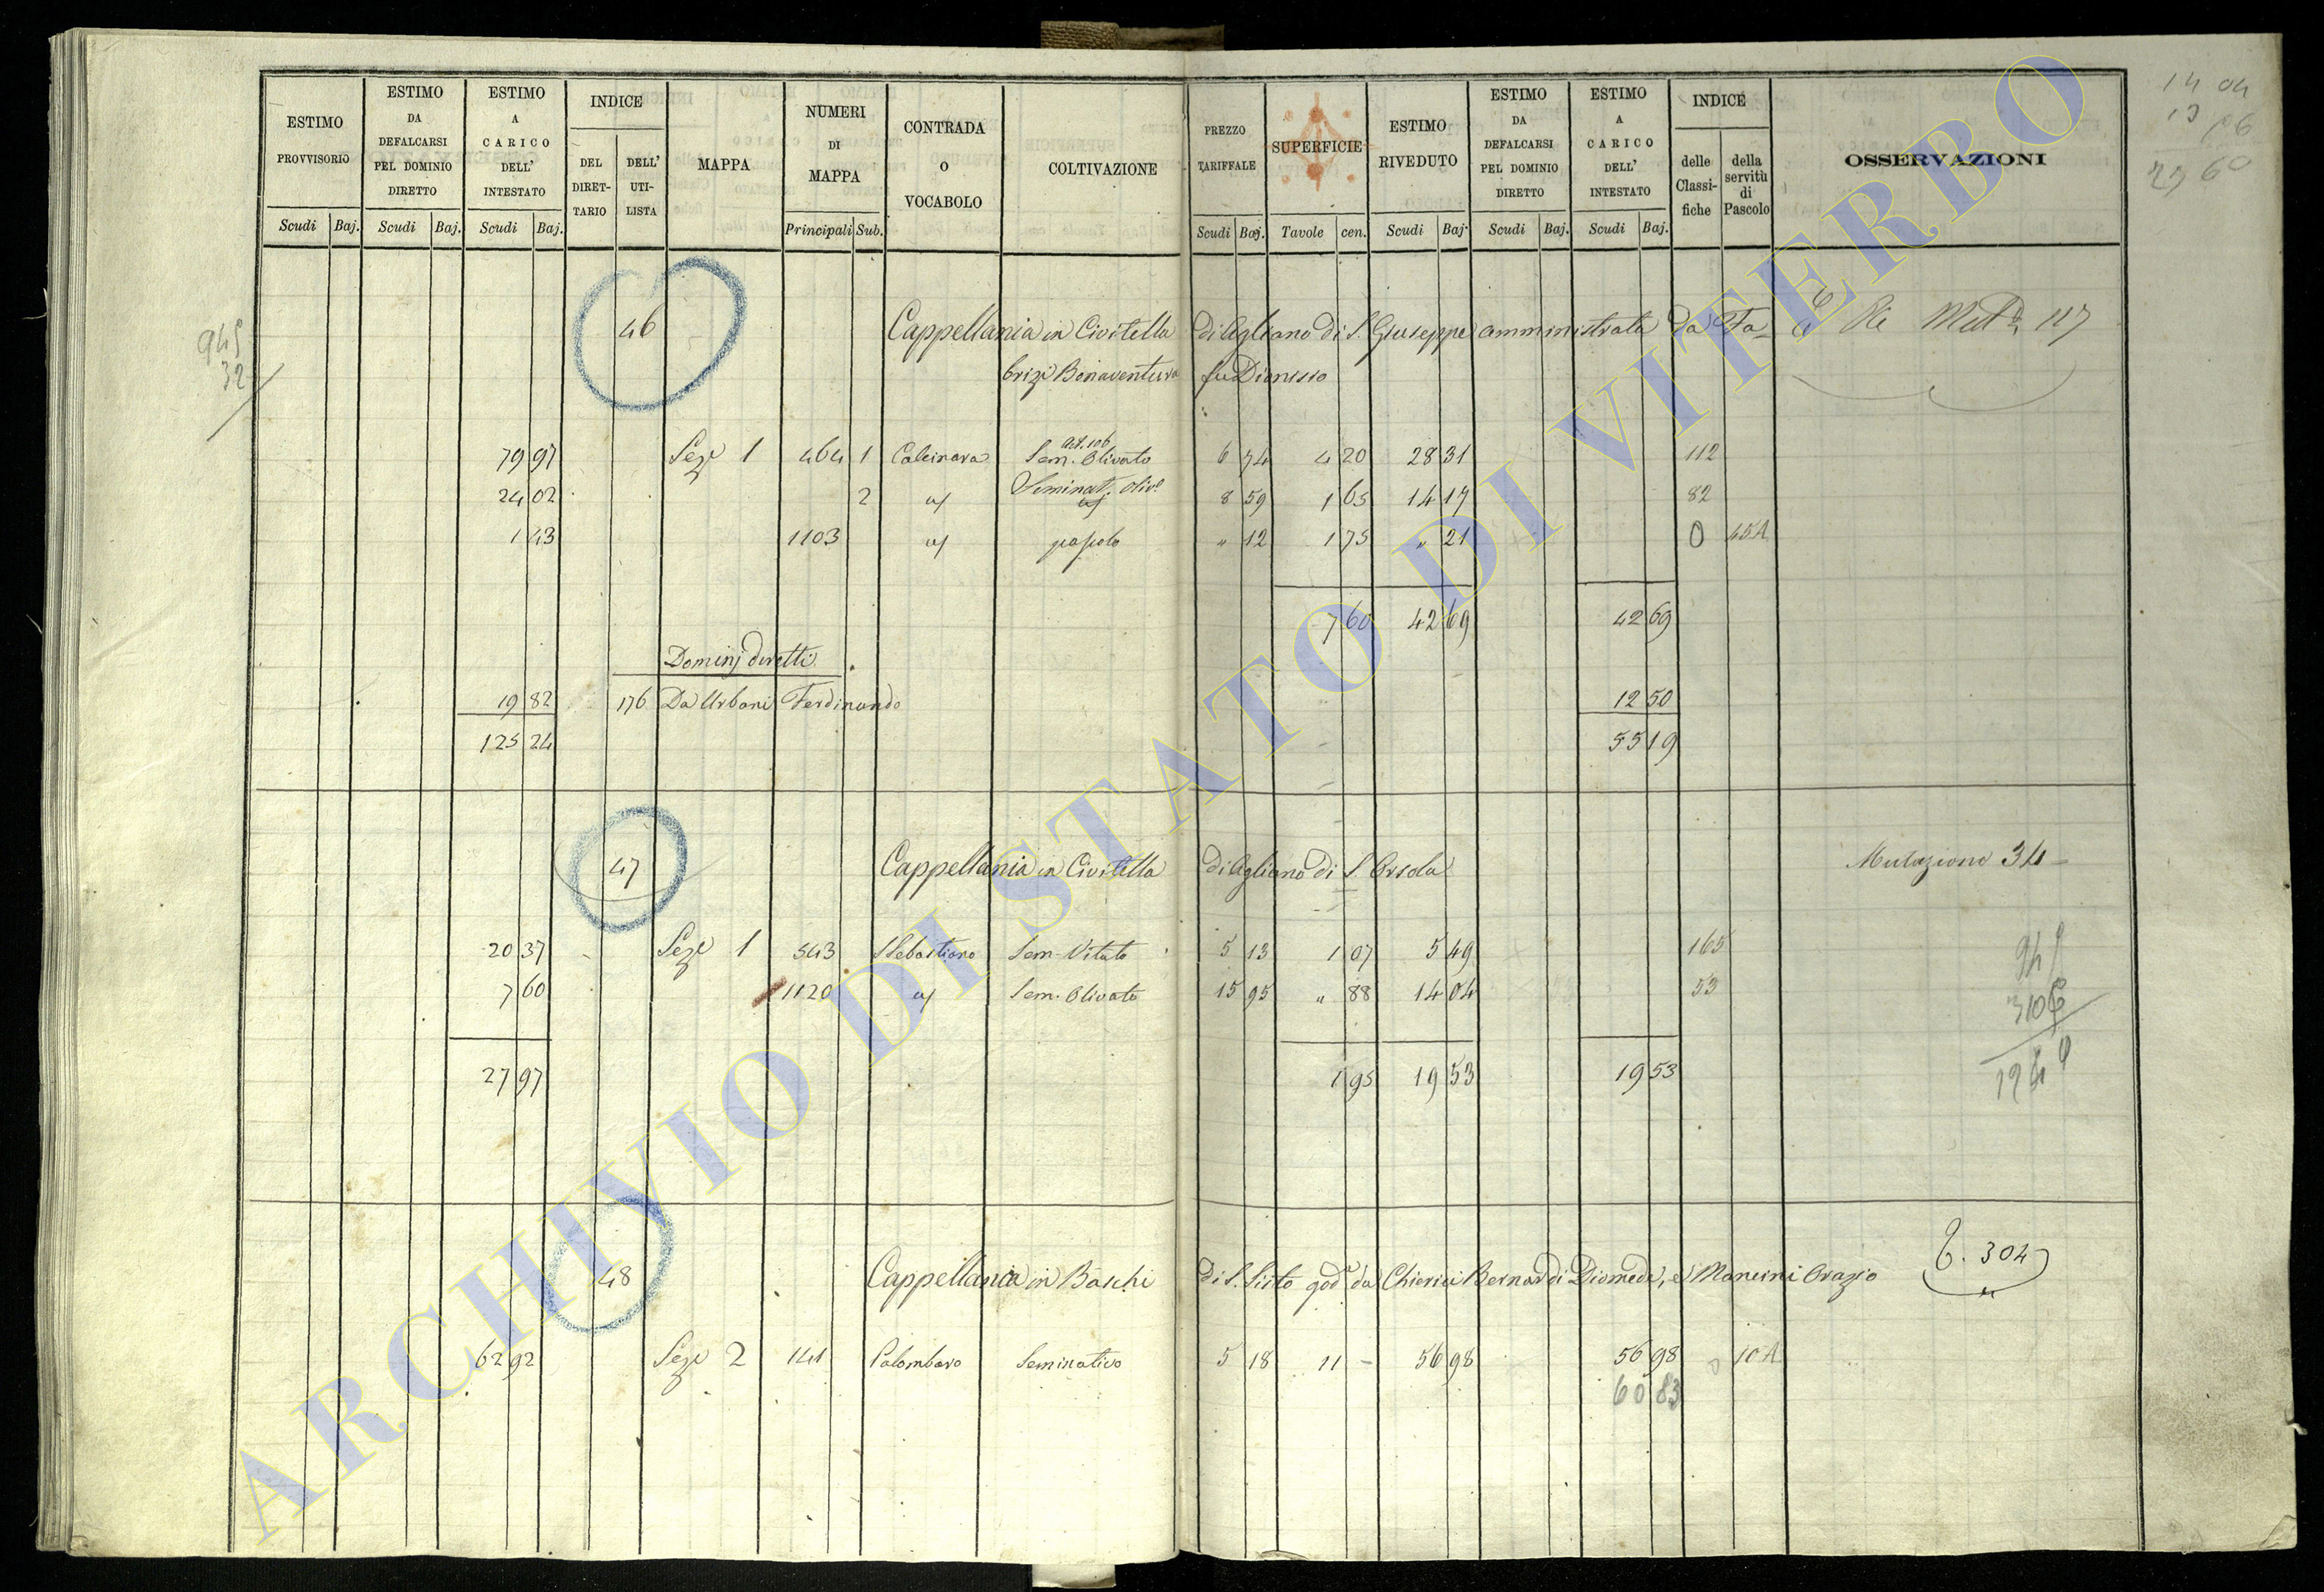 ESTIMO PROVVISORIO Scudi Baj.
ESTIMO DA DEFALCARSI PEL DOMINIO DIRETTO Scudi Baj.
ESTIMO A CARICO DELL' INTESTATO Scudi Baj.
INDICE DEL DIRET-TARIO DELL' UTI-LISTA
MAPPA
NUMERI DI MAPPA Principali Sub.
CONTRADA O VOCABOLO
COLTIVAZIONE
PREZZO TARIFFALE Scudi Baj.
SUPERFICIE Tavole cen.
ESTIMO RIVEDUTO Scudi Baj.
ESTIMO DA DEFALCARSI PEL DOMINIO DIRETTO Scudi Baj.
ESTIMO A CARICO DELL' INTESTATO Scudi Baj.
INDICE delle Classi-fiche della servitù di Pascolo
OSSERVAZIONI
14 04
27 60
46 Cappellania in Civitella di Agliano di S. Giuseppe amministrata da Fa- 117
brizi Bonaventura fu Dionisio
79 97 Seze 1 464 1 Calcinara Sem. Olivato 6 74 4 20 28 31 112
24 02 2 Seminat. oliv. 8 59 1 65 14 17 82
1 43 1103 pascolo " 12 1 75 " 21 0 45A
7 60 42 69 42 69
Dominj diretti
19 82 176 Da Urbani Ferdinando 12 50
125 24 55 19
47 Cappellania in Civitella di Agliano di S. Orsola Mutazione 34
20 37 Seze 1 543 S Sebastiano Sem. Vitato 5 13 1 07 5 49 165
7 60 1120 Sem. Olivato 15 95 " 88 14 04 53
27 97 1 95 19 53 19 53
48 Cappellania in Baschi di S. Sisto god. da Chierici Bernardi Diomede, e Mancini Orazio 304
62 92 Seze 2 141 Palombaro Seminativo 5 18 11 - 56 98 56 98 10A
60 83
ARCHIVIO DI STATO DI VITERBO